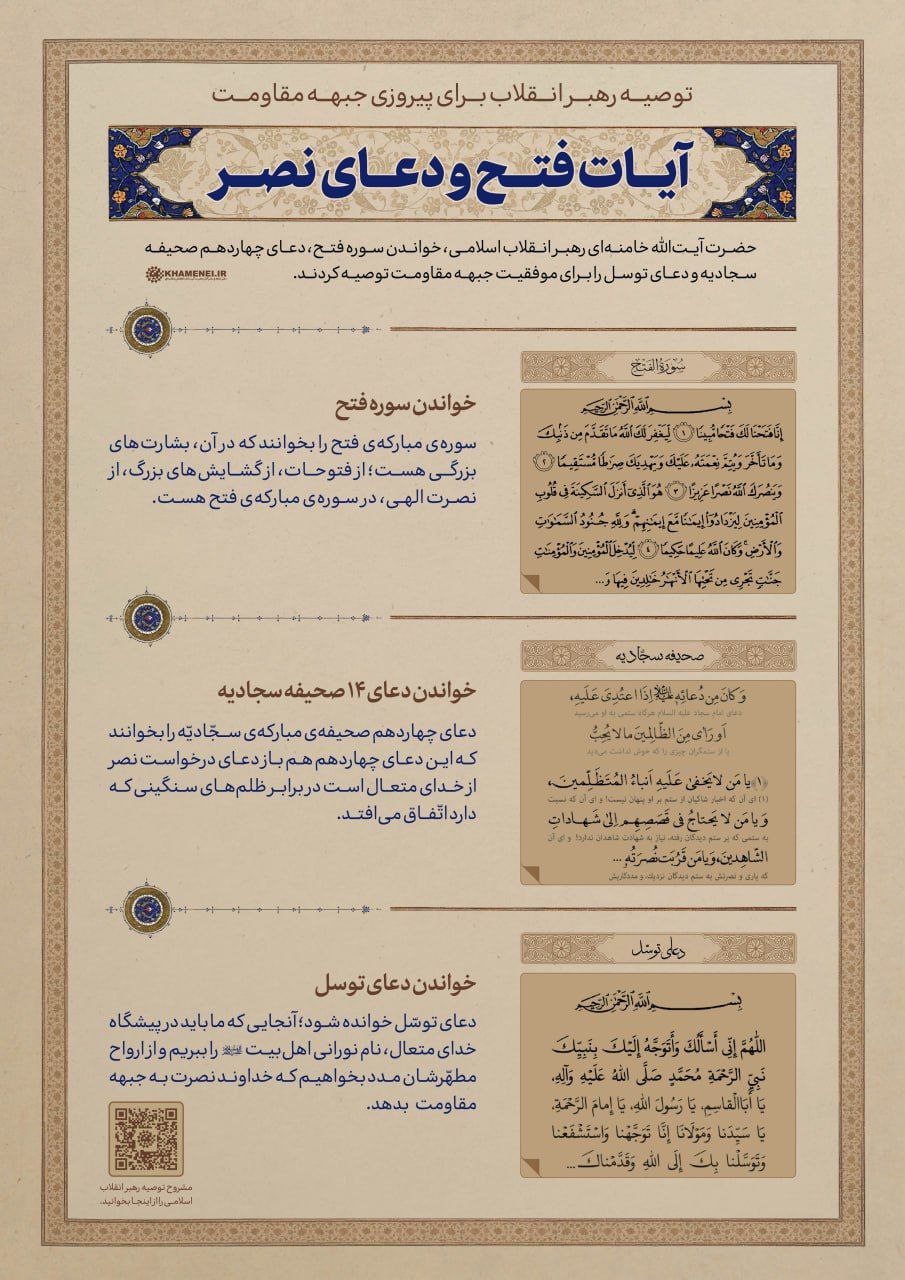 توصیه رهبر انقلاب برای پیروزی جبهه مقاومت
آیات فتح و دعای نصر
حضرت آیت‌الله خامنه‌ای رهبر انقلاب اسلامی، خواندن سوره فتح، دعای چهاردهم صحیفه
سجادیه و دعای توسل را برای موفقیت جبهه مقاومت توصیه کردند.
KHAMENEI.IR
سُورَةُ الفَتْح
بِسْمِ اللَّهِ الرَّحْمَٰنِ الرَّحِيمِ
إِنَّا فَتَحْنَا لَكَ فَتْحًا مُبِينًا ﴿١﴾ لِيَغْفِرَ لَكَ اللَّهُ مَا تَقَدَّمَ مِن ذَنبِكَ
وَمَا تَأَخَّرَ وَيُتِمَّ نِعْمَتَهُ عَلَيْكَ وَيَهْدِيَكَ صِرَاطًا مُسْتَقِيمًا ﴿٢﴾
وَيَنصُرَكَ اللَّهُ نَصْرًا عَزِيزًا ﴿٣﴾ هُوَ الَّذِي أَنزَلَ السَّكِينَةَ فِي قُلُوبِ
الْمُؤْمِنِينَ لِيَزْدَادُوا إِيمَانًا مَعَ إِيمَانِهِمْ وَلِلَّهِ جُنُودُ السَّمَاوَاتِ
وَالْأَرْضِ وَكَانَ اللَّهُ عَلِيمًا حَكِيمًا ﴿٤﴾ لِيُدْخِلَ الْمُؤْمِنِينَ وَالْمُؤْمِنَاتِ
جَنَّاتٍ تَجْرِي مِن تَحْتِهَا الْأَنْهَارُ خَالِدِينَ فِيهَا وَ...
خواندن سوره فتح
سوره‌ی مبارکه‌ی فتح را بخوانند که در آن، بشارت‌های
بزرگی هست؛ از فتوحات، از گشایش‌های بزرگ، از
نصرت الهی، در سوره‌ی مبارکه‌ی فتح هست.
صحیفه سجّادیه
وَ كانَ مِن دُعائِهِ علیه‌السلام إِذَا اعتُدِيَ عَلَيهِ،
دعای امام سجاد علیه السلام هرگاه ستمی به او می‌رسید
أَو رَأى مِنَ الظّالِمينَ ما لا يُحِبُّ
یا از ستمگران چیزی را که خوش نداشت می‌دید
﴿١﴾ يا مَن لا يَخفىٰ عَلَيهِ أَنباءُ المُتَظَلِّمينَ،
(۱) ای آن که اخبار شاکیان از ستم بر او پنهان نیست! و ای آن که نسبت
وَ يا مَن لا يَحتاجُ في قَصَصِهِم إِلىٰ شَهاداتِ
به ستمی که بر ستم دیدگان رفته، نیاز به شهادت شاهدان ندارد! و ای آن
الشّاهِدينَ، وَ يا مَن قَرُبَت نُصرَتُهُ ...
که یاری و نصرتش به ستم دیدگان نزدیک، و مددکاریش
خواندن دعای ۱۴ صحیفه سجادیه
دعای چهاردهم صحیفه‌ی مبارکه‌ی سجّادیّه را بخوانند
که این دعای چهاردهم هم باز دعای درخواست نصر
از خدای متعال است در برابر ظلم‌های سنگینی که
دارد اتّفاق می‌افتد.
دعای توسّل
بِسْمِ اللَّهِ الرَّحْمَٰنِ الرَّحِيمِ
اللّٰهُمَّ إِنّي أَسْأَلُكَ وَأَتَوَجَّهُ إِلَيْكَ بِنَبِيِّكَ
نَبِيِّ الرَّحْمَةِ مُحَمَّدٍ صَلَّى اللهُ عَلَيْهِ وَآلِهِ.
يَا أَبَا الْقَاسِمِ، يَا رَسُولَ اللهِ، يَا إِمَامَ الرَّحْمَةِ،
يَا سَيِّدَنَا وَمَوْلَانَا إِنَّا تَوَجَّهْنَا وَاسْتَشْفَعْنَا
وَتَوَسَّلْنَا بِكَ إِلَى اللهِ وَقَدَّمْنَاكَ ...
خواندن دعای توسل
دعای توسّل خوانده شود؛ آنجایی که ما باید در پیشگاه
خدای متعال، نام نورانی اهل‌بیت علیهم‌السلام را ببریم و از ارواح
مطهّرشان مدد بخواهیم که خداوند نصرت به جبهه
مقاومت بدهد.
مشروح توصیه رهبر انقلاب
اسلامی را از اینجا بخوانید.